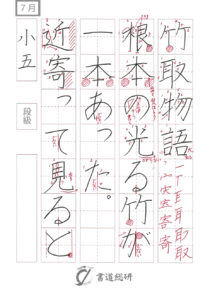 7月
小五
段級
竹取物語
根、本の光る竹が
一本あった。
近寄って見ると
書道総研